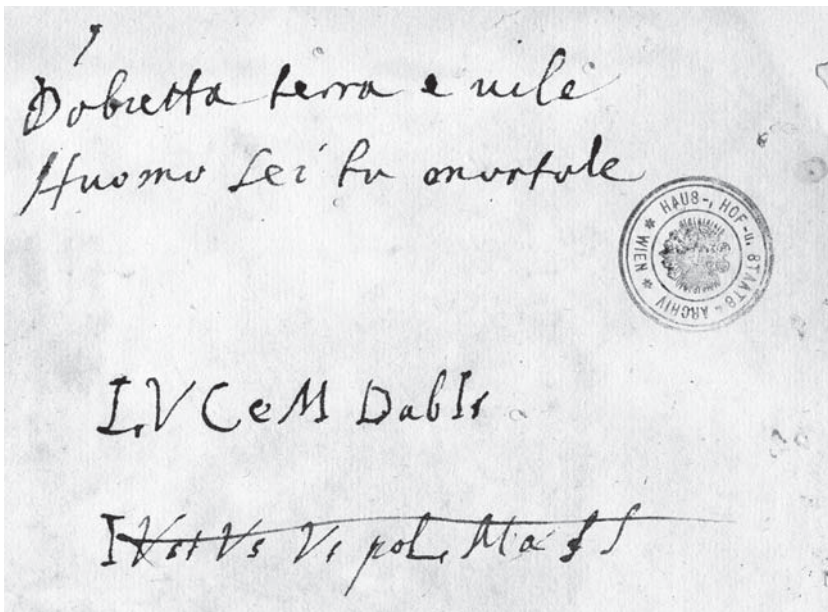 Dobietta terra e uile
Huomo sei tu mortale
HAUS-, HOF-u. STAATS-ARCHIV * WIEN *
LVCeM DabIs
IVstVs